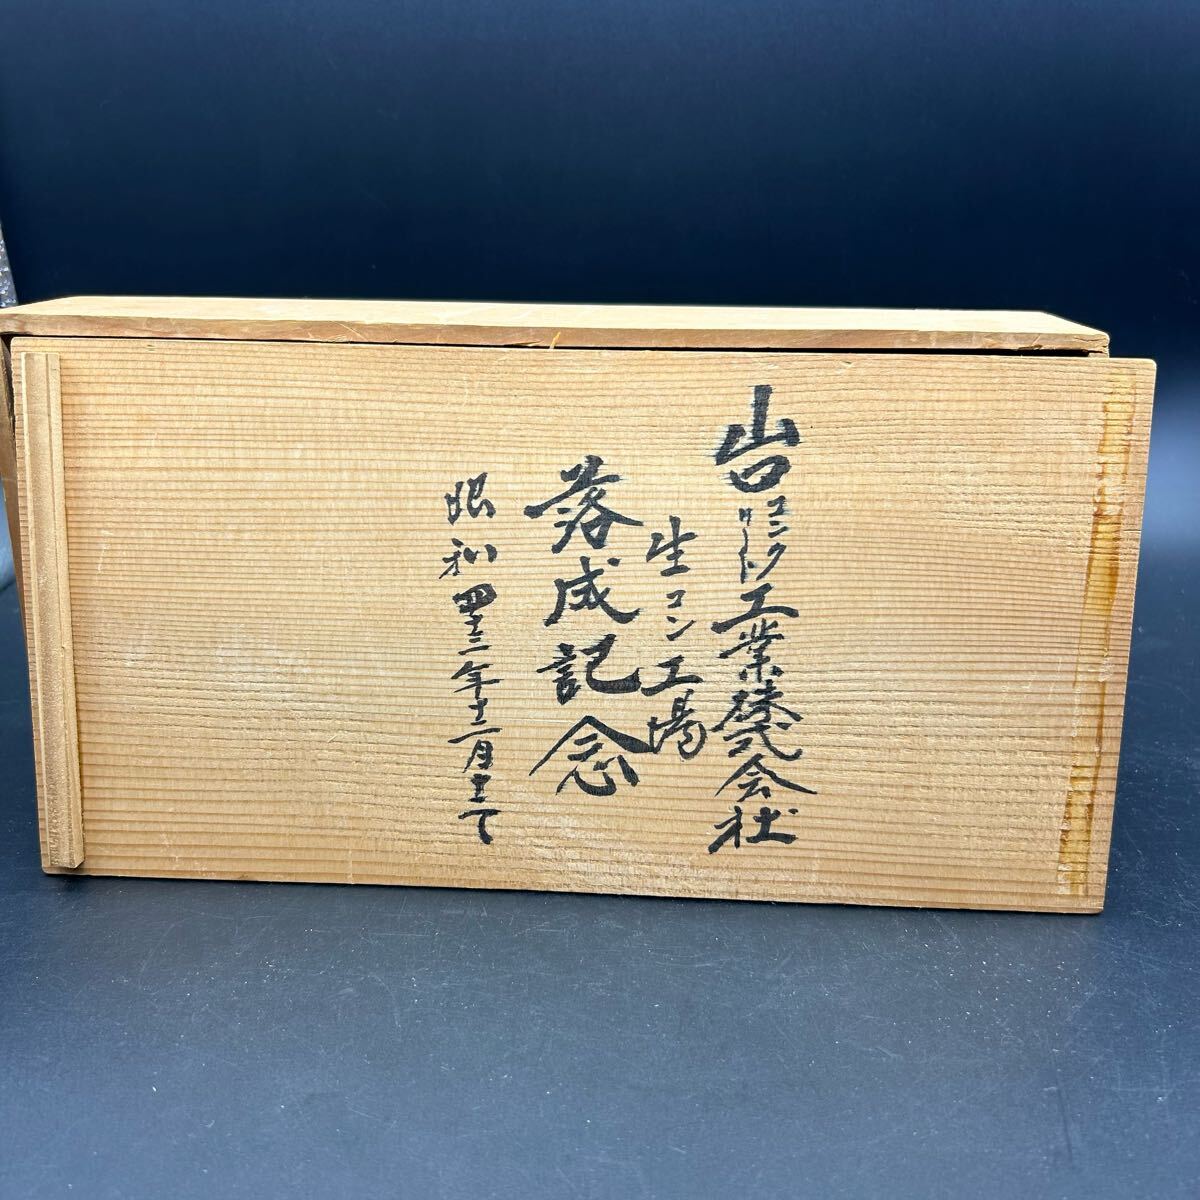 山口コンクリート工業株式会社
生コン工場
落成記念
昭和四十三年十二月